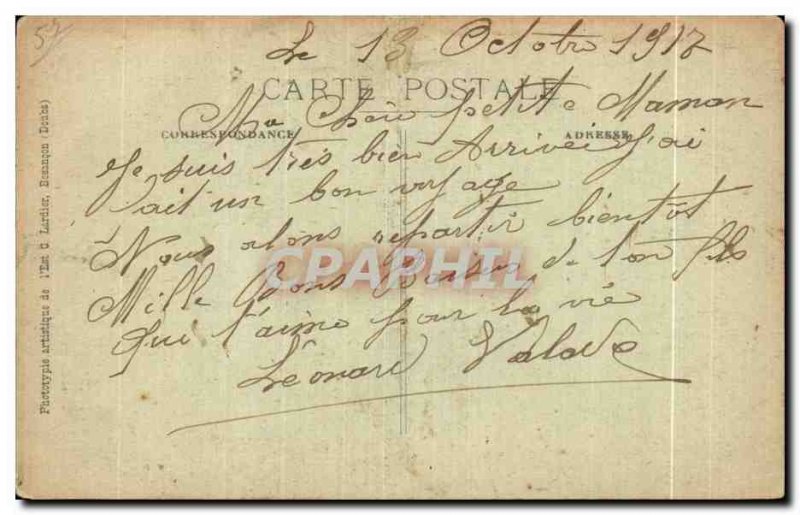 59
Le 13 Octobre 1917
CARTE POSTALE
Ma Chère petite Maman
CORRESPONDANCE
ADRESSE
Je suis très bien Arrivée J'ai
fait un bon voyage
Nous alons repartir bientôt
Mille bons Baisers de ton fils
Qui t'aime pour la vie
Léonard Valade
CPAPHIL
Phototypie artistique de l'Est C. Lardier, Besançon (Doubs)